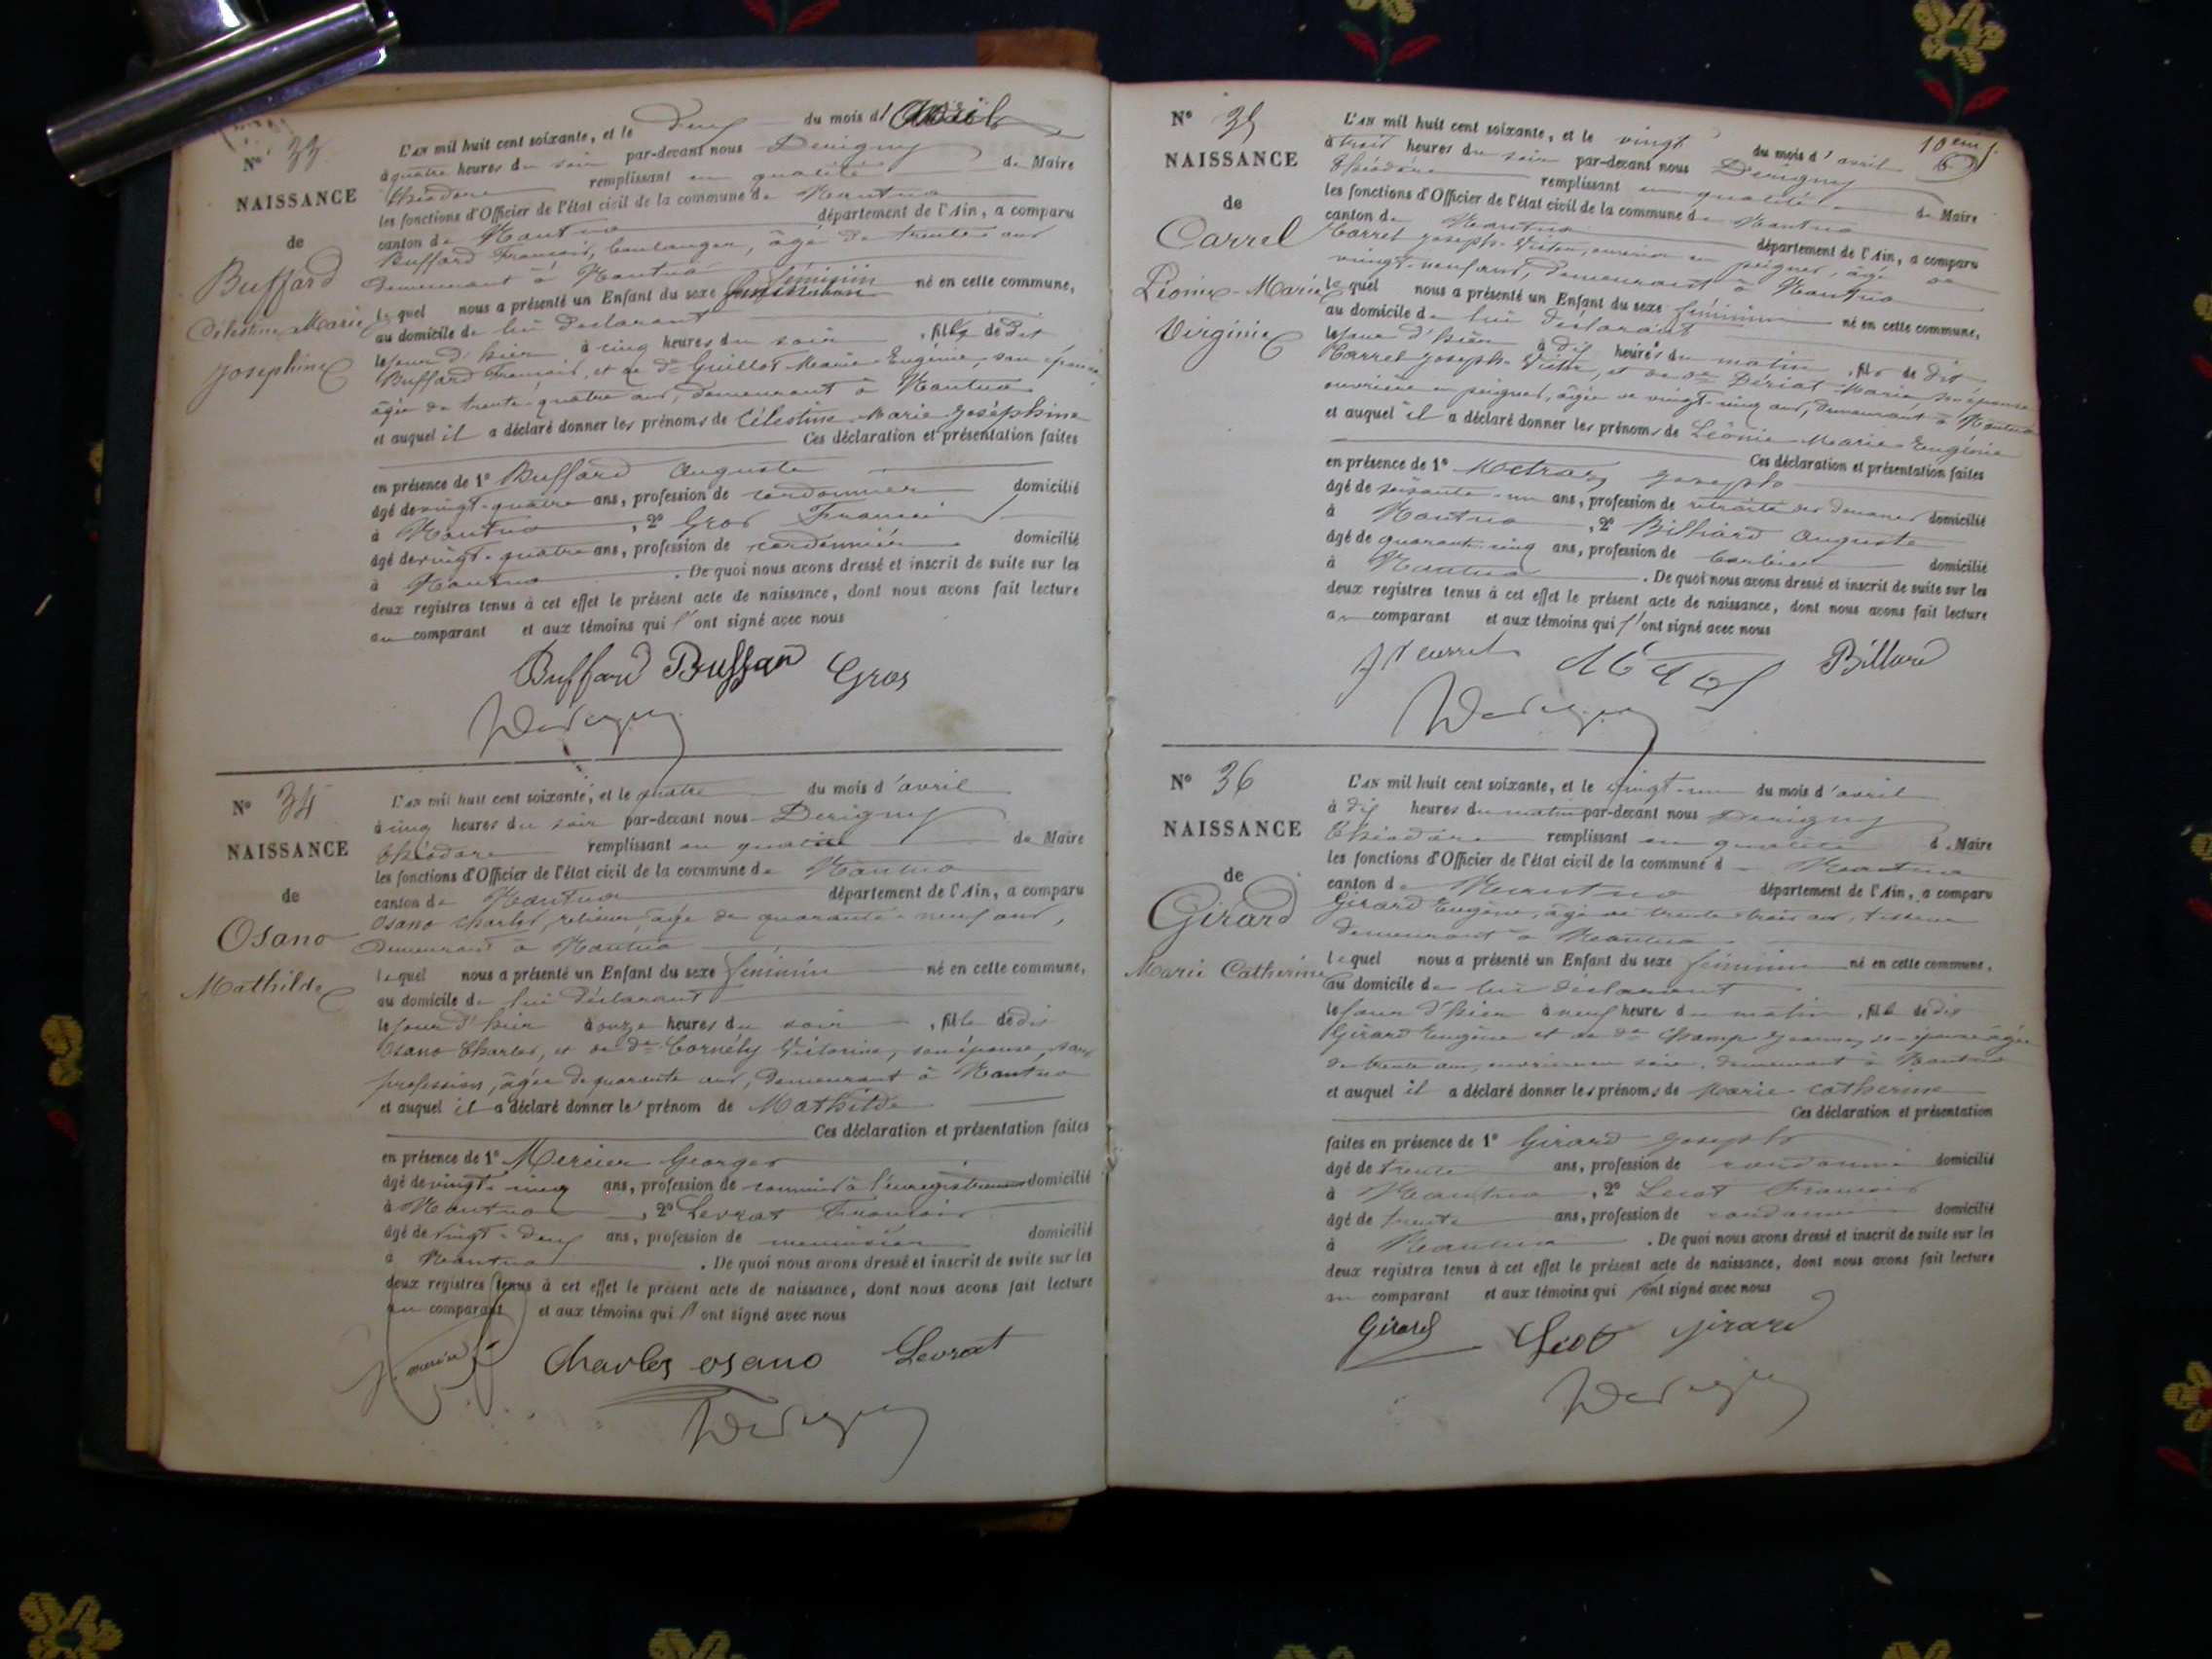 N° 33
NAISSANCE
de
Buffard
Célestine Marie
Joséphine
L'AN mil huit cent soixante, et le deux du mois d'Avril
à quatre heures du soir par-devant nous Derigny
Théodore remplissant en qualité de Maire
les fonctions d'Officier de l'état civil de la commune de Nantua
canton de Nantua département de l'Ain, a comparu
Buffard François, boulanger, âgé de trente ans
demeurant à Nantua
lequel nous a présenté un Enfant du sexe féminin né en cette commune,
au domicile de lui déclarant
le jour d'hier à cinq heures du soir, fille de dit
Buffard François, et de de Guillot Marie Eugénie, son épouse,
âgée de trente quatre ans, demeurant à Nantua
et auquel il a déclaré donner les prénoms de Célestine Marie Joséphine
Ces déclaration et présentation faites
en présence de 1° Buffard Auguste
âgé de vingt-quatre ans, profession de cordonnier domicilié
à Nantua, 2° Gros François
âgé de vingt-quatre ans, profession de cordonnier domicilié
à Nantua. De quoi nous avons dressé et inscrit de suite sur les
deux registres tenus à cet effet le présent acte de naissance, dont nous avons fait lecture
au comparant et aux témoins qui l'ont signé avec nous
Buffard Buffard Gros
Derigny
N° 34
NAISSANCE
de
Osano
Mathilde
L'AN mil huit cent soixante, et le quatre du mois d'avril
à cinq heures du soir par-devant nous Derigny
Théodore remplissant en qualité de Maire
les fonctions d'Officier de l'état civil de la commune de Nantua
canton de Nantua département de l'Ain, a comparu
Osano Charles, relieur, âgé de quarante-neuf ans,
demeurant à Nantua
lequel nous a présenté un Enfant du sexe féminin né en cette commune,
au domicile de lui déclarant
le jour d'hier à onze heures du soir, fille de dit
Osano Charles, et de de Cornély Victorine, son épouse, sans
profession, âgée de quarante ans, demeurant à Nantua
et auquel il a déclaré donner le prénom de Mathilde
Ces déclaration et présentation faites
en présence de 1° Mercier Georges
âgé de vingt-cinq ans, profession de commis à l'enregistrement domicilié
à Nantua, 2° Levrat François
âgé de vingt-deux ans, profession de menuisier domicilié
à Nantua. De quoi nous avons dressé et inscrit de suite sur les
deux registres tenus à cet effet le présent acte de naissance, dont nous avons fait lecture
au comparant et aux témoins qui l'ont signé avec nous
Charles osano Levrat
Derigny
N° 35
NAISSANCE
de
Carrel
Léonie-Marie
Virginie
L'AN mil huit cent soixante, et le vingt du mois d'avril
à trois heures du soir par-devant nous Derigny
Théodore remplissant en qualité de Maire
les fonctions d'Officier de l'état civil de la commune de Nantua
canton de Nantua département de l'Ain, a comparu
Carrel Joseph-Victor, ouvrier en peignes, âgé de
vingt-neuf ans, demeurant à Nantua
lequel nous a présenté un Enfant du sexe féminin né en cette commune,
au domicile de lui déclarant
le jour d'hier à dix heures du matin, fils de dit
Carrel Joseph-Victor, et de de Dériat Marie son épouse
ouvrière en peignes, âgée de vingt-cinq ans, demeurant à Nantua
et auquel il a déclaré donner les prénoms de Léonie Marie Eugénie
Ces déclaration et présentation faites
en présence de 1° Joseph
âgé de soixante-un ans, profession de retraité des douanes domicilié
à Nantua, 2° Billiard Auguste
âgé de quarante-cinq ans, profession de domicilié
à Nantua. De quoi nous avons dressé et inscrit de suite sur les
deux registres tenus à cet effet le présent acte de naissance, dont nous avons fait lecture
au comparant et aux témoins qui l'ont signé avec nous
Billard
Derigny
N° 36
NAISSANCE
de
Girard
Marie Catherine
L'AN mil huit cent soixante, et le vingt-un du mois d'avril
à dix heures du matin par-devant nous Derigny
Théodore remplissant en qualité de Maire
les fonctions d'Officier de l'état civil de la commune d Nantua
canton de Nantua département de l'Ain, a comparu
Girard Eugène, âgé de trente-trois ans, tisseur
demeurant à Nantua
lequel nous a présenté un Enfant du sexe féminin né en cette commune,
au domicile de lui déclarant
le jour d'hier à neuf heures du matin, fille de dit
Girard Eugène et de de Champ Jeanne, son épouse âgée
de trente ans, ouvrière en soie, demeurant à Nantua
et auquel il a déclaré donner les prénoms de Marie Catherine
Ces déclaration et présentation
faites en présence de 1° Girard Joseph
âgé de trente ans, profession de cordonnier domicilié
à Nantua, 2° François
âgé de trente ans, profession de cordonnier domicilié
à Nantua. De quoi nous avons dressé et inscrit de suite sur les
deux registres tenus à cet effet le présent acte de naissance, dont nous avons fait lecture
au comparant et aux témoins qui l'ont signé avec nous
Girard girard
Derigny